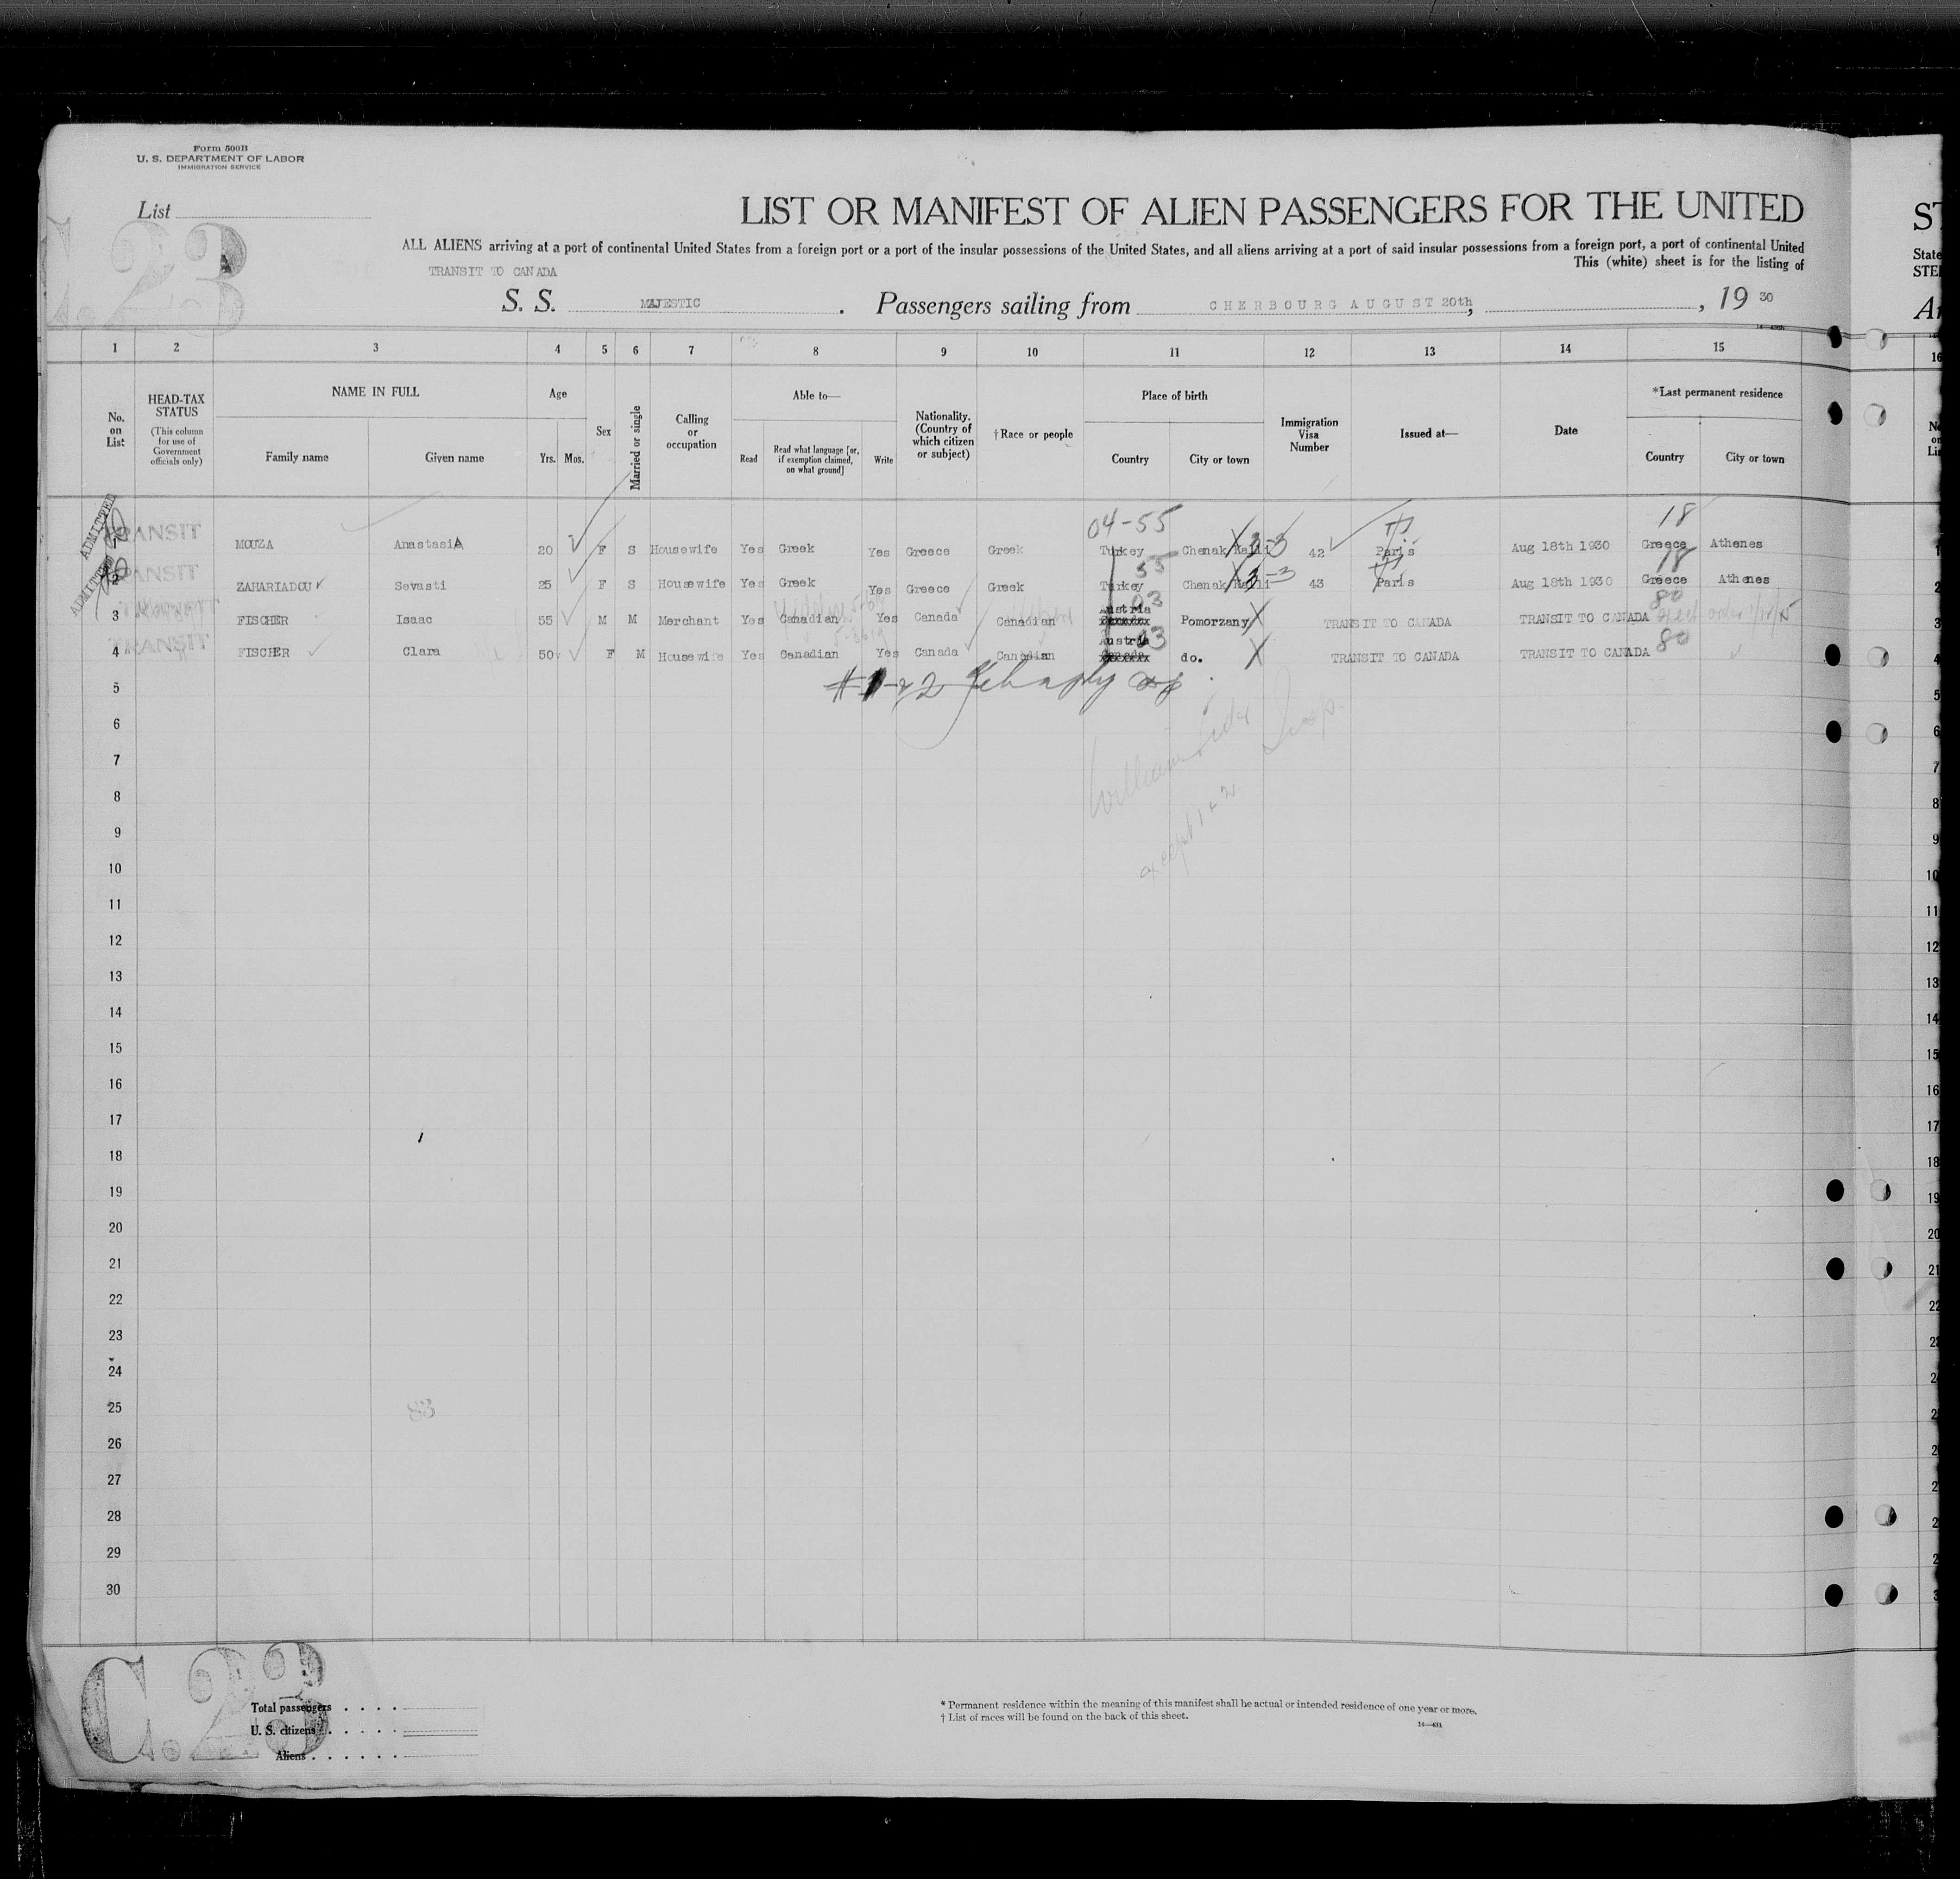 Form 500B
U. S. DEPARTMENT OF LABOR
IMMIGRATION SERVICE
List
C.23
LIST OR MANIFEST OF ALIEN PASSENGERS FOR THE UNITED
ALL ALIENS arriving at a port of continental United States from a foreign port or a port of the insular possessions of the United States, and all aliens arriving at a port of said insular possessions from a foreign port, a port of continental United
This (white) sheet is for the listing of
TRANSIT TO CANADA
S. S. MAJESTIC . Passengers sailing from CHERBOURG AUGUST 20th, , 19 30
ST
State
STE
1 2 3 4 5 6 7 8 9 10 11 12 13 14 15 16
No. on List
HEAD-TAX STATUS
(This column for use of Government officials only)
NAME IN FULL
Family name Given name
Age
Yrs. Mos.
Sex
Married or single
Calling or occupation
Able to—
Read Read what language [or, if exemption claimed, on what ground] Write
Nationality. (Country of which citizen or subject)
†Race or people
Place of birth
Country City or town
Immigration Visa Number
Issued at—
Date
*Last permanent residence
Country City or town
04-55 18
ADMITTED TRANSIT 1 MOUZA Anastasia 20 F S Housewife Yes Greek Yes Greece Greek Turkey Chenak Kalli 3-3 42 Paris Aug 18th 1930 Greece Athenes
55 18
ADMITTED TRANSIT 2 ZAHARIADOU Sevasti 25 F S Housewife Yes Greek Yes Greece Greek Turkey Chenak Kalli 3-3 43 Paris Aug 18th 1930 Greece Athenes
03 80
3 FISCHER Isaac 55 M M Merchant Yes Canadian Yes Canada Canadian Austria Pomorzany TRANSIT TO CANADA TRANSIT TO CANADA
03 80
TRANSIT 4 FISCHER Clara 50 F M Housewife Yes Canadian Yes Canada Canadian Austria do. TRANSIT TO CANADA TRANSIT TO CANADA
5
6
Insp.
7
8
except 1 + 2
9
10
11
12
13
14
15
16
17
18
19
20
21
22
23
24
25
83
26
27
28
29
30
C.23
Total passengers . . . .
U. S. citizens . . . . .
Aliens . . . . . .
* Permanent residence within the meaning of this manifest shall be actual or intended residence of one year or more.
† List of races will be found on the back of this sheet.
14—431